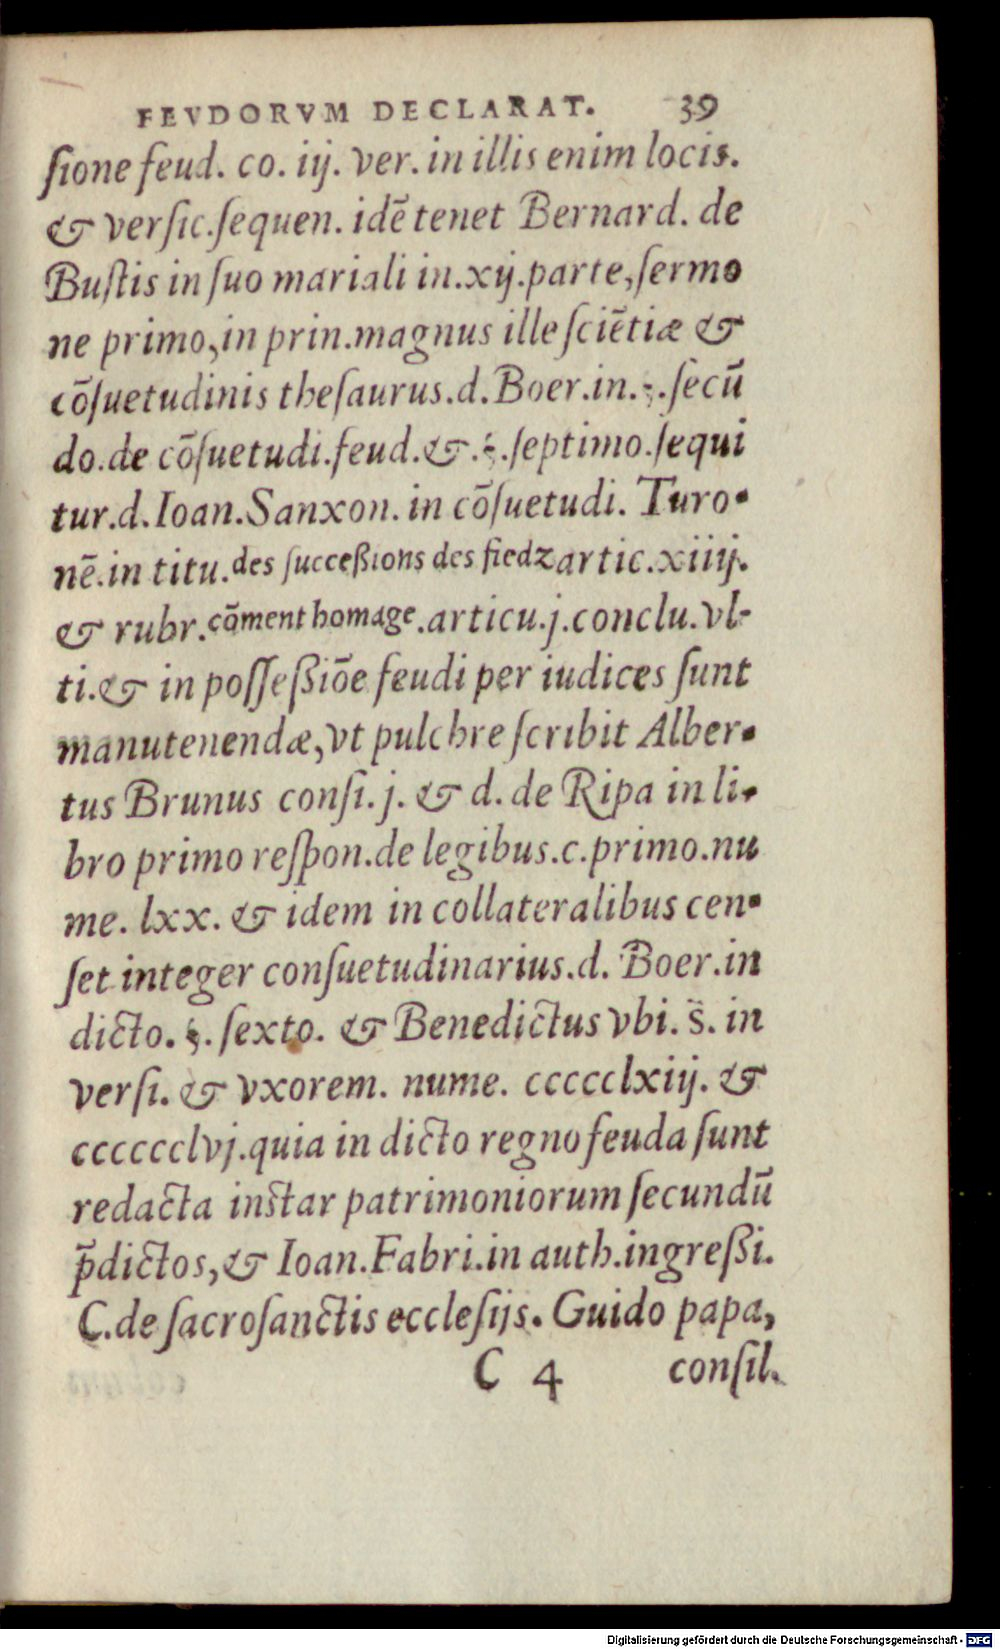 FEVDORVM DECLARAT. 39
ſione feud. co. iij. ver. in illis enim locis.
& verſic.ſequen. idē tenet Bernard. de
Buſtis in ſuo mariali in.xij.parte,ſermo
ne primo,in prin.magnus ille ſciētiæ &
cōſuetudinis theſaurus.d.Boer.in.§.ſecū
do.de cōſuetudi.feud.&.§.ſeptimo.ſequi
tur.d.Ioan.Sanxon. in cōſuetudi. Turo-
nē.in titu.des ſucceßions des fiedz artic.xiiij.
& rubr.cōment homage.articu.j.conclu.vl-
ti.& in poſſeßiōe feudi per iudices ſunt
manutenendæ,vt pulchre ſcribit Alber-
tus Brunus conſi. j. & d. de Ripa in li-
bro primo reſpon.de legibus.c.primo.nu
me. lxx. & idem in collateralibus cen-
ſet integer conſuetudinarius.d. Boer.in
dicto. §. ſexto. & Benedictus vbi. s̄. in
verſi. & vxorem. nume. ccccclxiij. &
cccccclvj.quia in dicto regno feuda ſunt
redacta inſtar patrimoniorum ſecundū
p̄dictos,& Ioan.Fabri.in auth.ingreßi.
C.de ſacroſanctis eccleſijs. Guido papa,
C 4 conſil.
Digitalisierung gefördert durch die Deutsche Forschungsgemeinschaft - DFG